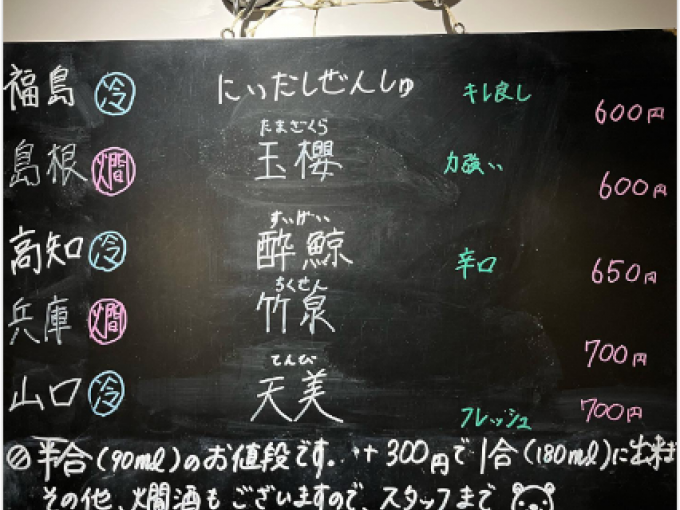 福島 冷 にいだしぜんしゅ キレ良し 600円
たまざくら
島根 燗 玉櫻 力強い 600円
すいげい
高知 冷 酔鯨 辛口 650円
ちくせん
兵庫 燗 竹泉 700円
てんび
山口 冷 天美 フレッシュ 700円
半合(90ml)のお値段です。++300円で1合(180ml)に出来ま
その他、燗酒もございますので、スタッフまで